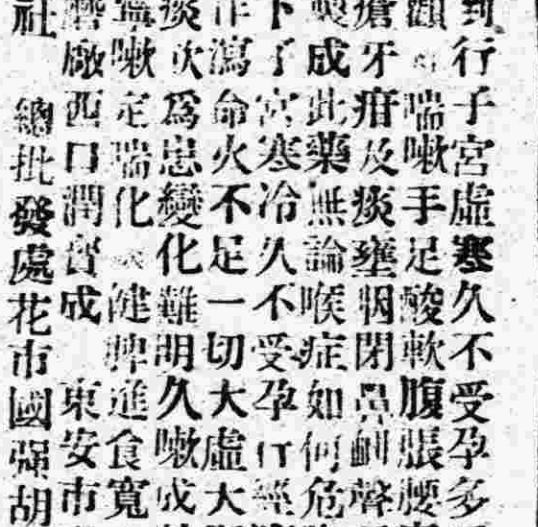 到行子宮虛寒久不受孕多
顫喘嗽手足酸軟腹張腰
瘡牙疳及痰壅咽閉鼻齁聲
喪成此藥無論喉症如何危
下了宮寒冷久不受孕行經
作瀉命火不足一切大虛大
痰吹為患變化難胡久嗽成
寧嗽定喘化健脾進食寬
磨廠西口潤督成 東安市
社 總批發處花市國強胡